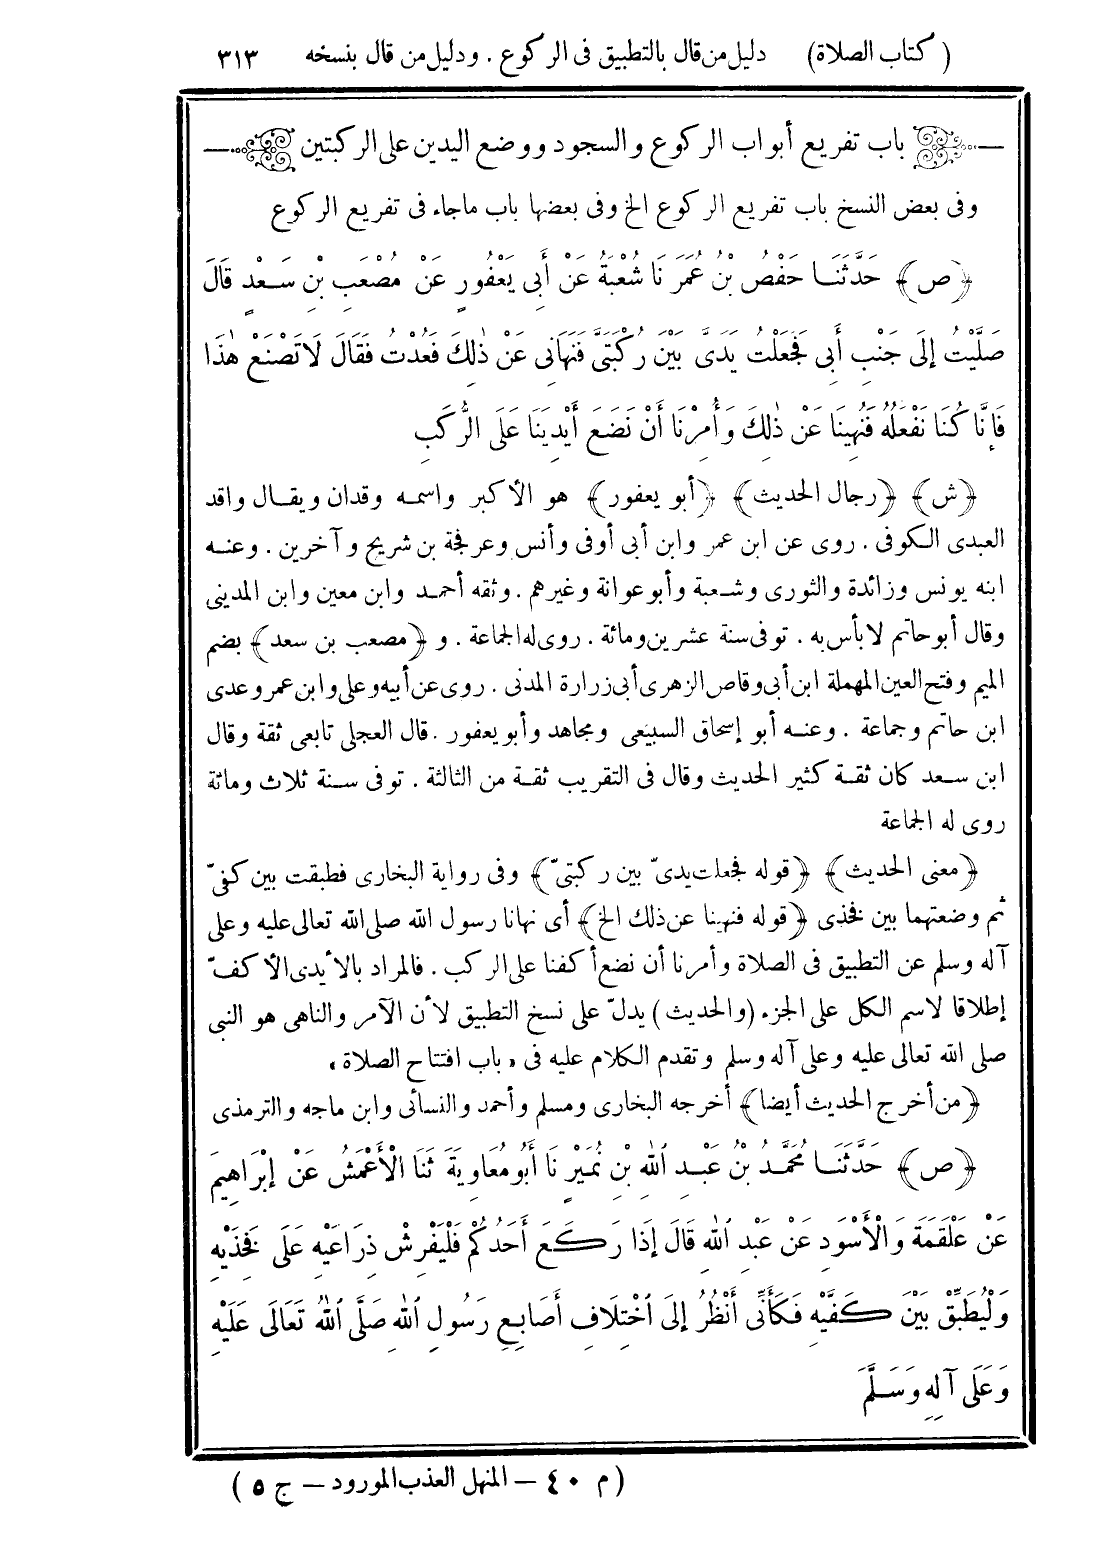 ( كتاب الصلاة ) دليل من قال بالتطبيق فى الركوع . ودليل من قال بنسخه ٣١٣
باب تفريع أبواب الركوع والسجود ووضع اليدين على الركبتين
وفى بعض النسخ باب تفريع الركوع الخ وفى بعضها باب ماجاء فى تفريع الركوع
﴿ص﴾ حَدَّثَنَا حَفْصُ بْنُ عُمَرَ نَا شُعْبَةُ عَنْ أَبِى يَعْفُورٍ عَنْ مُصْعَبِ بْنِ سَعْدٍ قَالَ
صَلَّيْتُ إِلَى جَنْبِ أَبِى فَجَعَلْتُ يَدَىَّ بَيْنَ رُكْبَتَىَّ فَنَهَانِى عَنْ ذٰلِكَ فَعُدْتُ فَقَالَ لَا تَصْنَعْ هٰذَا
فَإِنَّا كُنَا نَفْعَلُهُ فَنُهِينَا عَنْ ذٰلِكَ وَأُمِرْنَا أَنْ نَضَعَ أَيْدِيَنَا عَلَى الرُّكَبِ
﴿ش﴾ ﴿رجال الحديث﴾ ﴿أبو يعفور﴾ هو الأكبر واسمه وقدان ويقال واقد
العبدى الكوفى . روى عن ابن عمر وابن أبى أوفى وأنس وعرفجة بن شريح وآخرين . وعنه
ابنه يونس وزائدة والثورى وشعبة وأبو عوانة وغيرهم . وثقه أحمد وابن معين وابن المدينى
وقال أبوحاتم لا بأس به . توفى سنة عشرين ومائة . روى له الجماعة . و ﴿مصعب بن سعد﴾ بضم
الميم وفتح العين المهملة ابن أبى وقاص الزهرى أبى زرارة المدنى . روى عن أبيه وعلى وابن عمر وعدى
ابن حاتم وجماعة . وعنه أبو إسحاق السبيعى ومجاهد وأبو يعفور . قال العجلى تابعى ثقة وقال
ابن سعد كان ثقة كثير الحديث وقال فى التقريب ثقة من الثالثة . توفى سنة ثلاث ومائة
روى له الجماعة
﴿معنى الحديث﴾ ﴿قوله فجعلت يدىّ بين ركبتىّ﴾ وفى رواية البخارى فطبقت بين كفىّ
ثم وضعتهما بين فخذى ﴿قوله فنهينا عن ذلك الخ﴾ أى نهانا رسول الله صلى الله تعالى عليه وعلى
آله وسلم عن التطبيق فى الصلاة وأمرنا أن نضع أكفنا على الركب . فالمراد بالأيدى الأكفّ
إطلاقا لاسم الكل على الجزء (والحديث) يدلّ على نسخ التطبيق لأن الآمر والناهى هو النبى
صلى الله تعالى عليه وعلى آله وسلم وتقدم الكلام عليه فى «باب افتتاح الصلاة»
﴿من أخرج الحديث أيضا﴾ أخرجه البخارى ومسلم وأحمد والنسائى وابن ماجه والترمذى
﴿ص﴾ حَدَّثَنَا مُحَمَّدُ بْنُ عَبْدِ ٱللهِ بْنِ نُمَيْرٍ نَا أَبُو مُعَاوِيَةَ ثَنَا الْأَعْمَشُ عَنْ إِبْرَاهِيمَ
عَنْ عَلْقَمَةَ وَالْأَسْوَدِ عَنْ عَبْدِ ٱللهِ قَالَ إِذَا رَكَعَ أَحَدُكُمْ فَلْيَفْرِشْ ذِرَاعَيْهِ عَلَى فَخِذَيْهِ
وَلْيُطَبِّقْ بَيْنَ كَفَّيْهِ فَكَأَنِّى أَنْظُرُ إِلَى ٱخْتِلَافِ أَصَابِعِ رَسُولِ ٱللهِ صَلَّى ٱللهُ تَعَالَى عَلَيْهِ
وَعَلَى آلِهِ وَسَلَّمَ
( م ٤٠ – المنهل العذب المورود – ج ٥ )